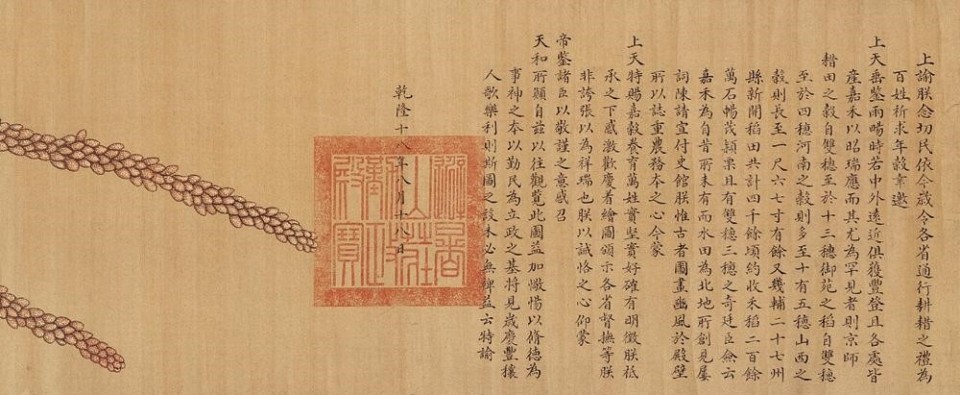 上諭朕念切民依今歲令各省通行耕耤之禮為
百姓祈求年穀幸邀
上天垂鑒雨暘時若中外遠近俱獲豐登且各處皆
產嘉禾以昭瑞應而其尤為罕見者則京師
耤田之穀自雙穗至於十三穗御苑之稻自雙穗
至於四穗河南之穀則多至十有五穗山西之
穀則長至一尺六七寸有餘又畿輔二十七州
縣新開稻田共計四千餘頃約收禾稻二百餘
萬石暢茂穎栗且有雙穗三穗之奇廷臣僉云
嘉禾為自昔所未有而水田為北地所創見屢
詞陳請宣付史館朕惟古者圖畫豳風於殿壁
所以誌重農務本之心今蒙
上天特賜嘉穀養育萬姓實堅實好確有明徵朕祇
承之下感激歡慶著繪圖頒示各省督撫等朕
非誇張以為祥瑞也朕以誠恪之心仰蒙
帝鑒諸臣以敬謹之意感召
天和所顯自茲以往觀覽此圖益加儆惕以脩德為
事神之本以勤民為立政之基將見歲慶豐穰
人歌樂利則斯圖之設未必無裨益云特諭
乾隆十八年八月十八日
避暑
山莊
勤政
殿寶